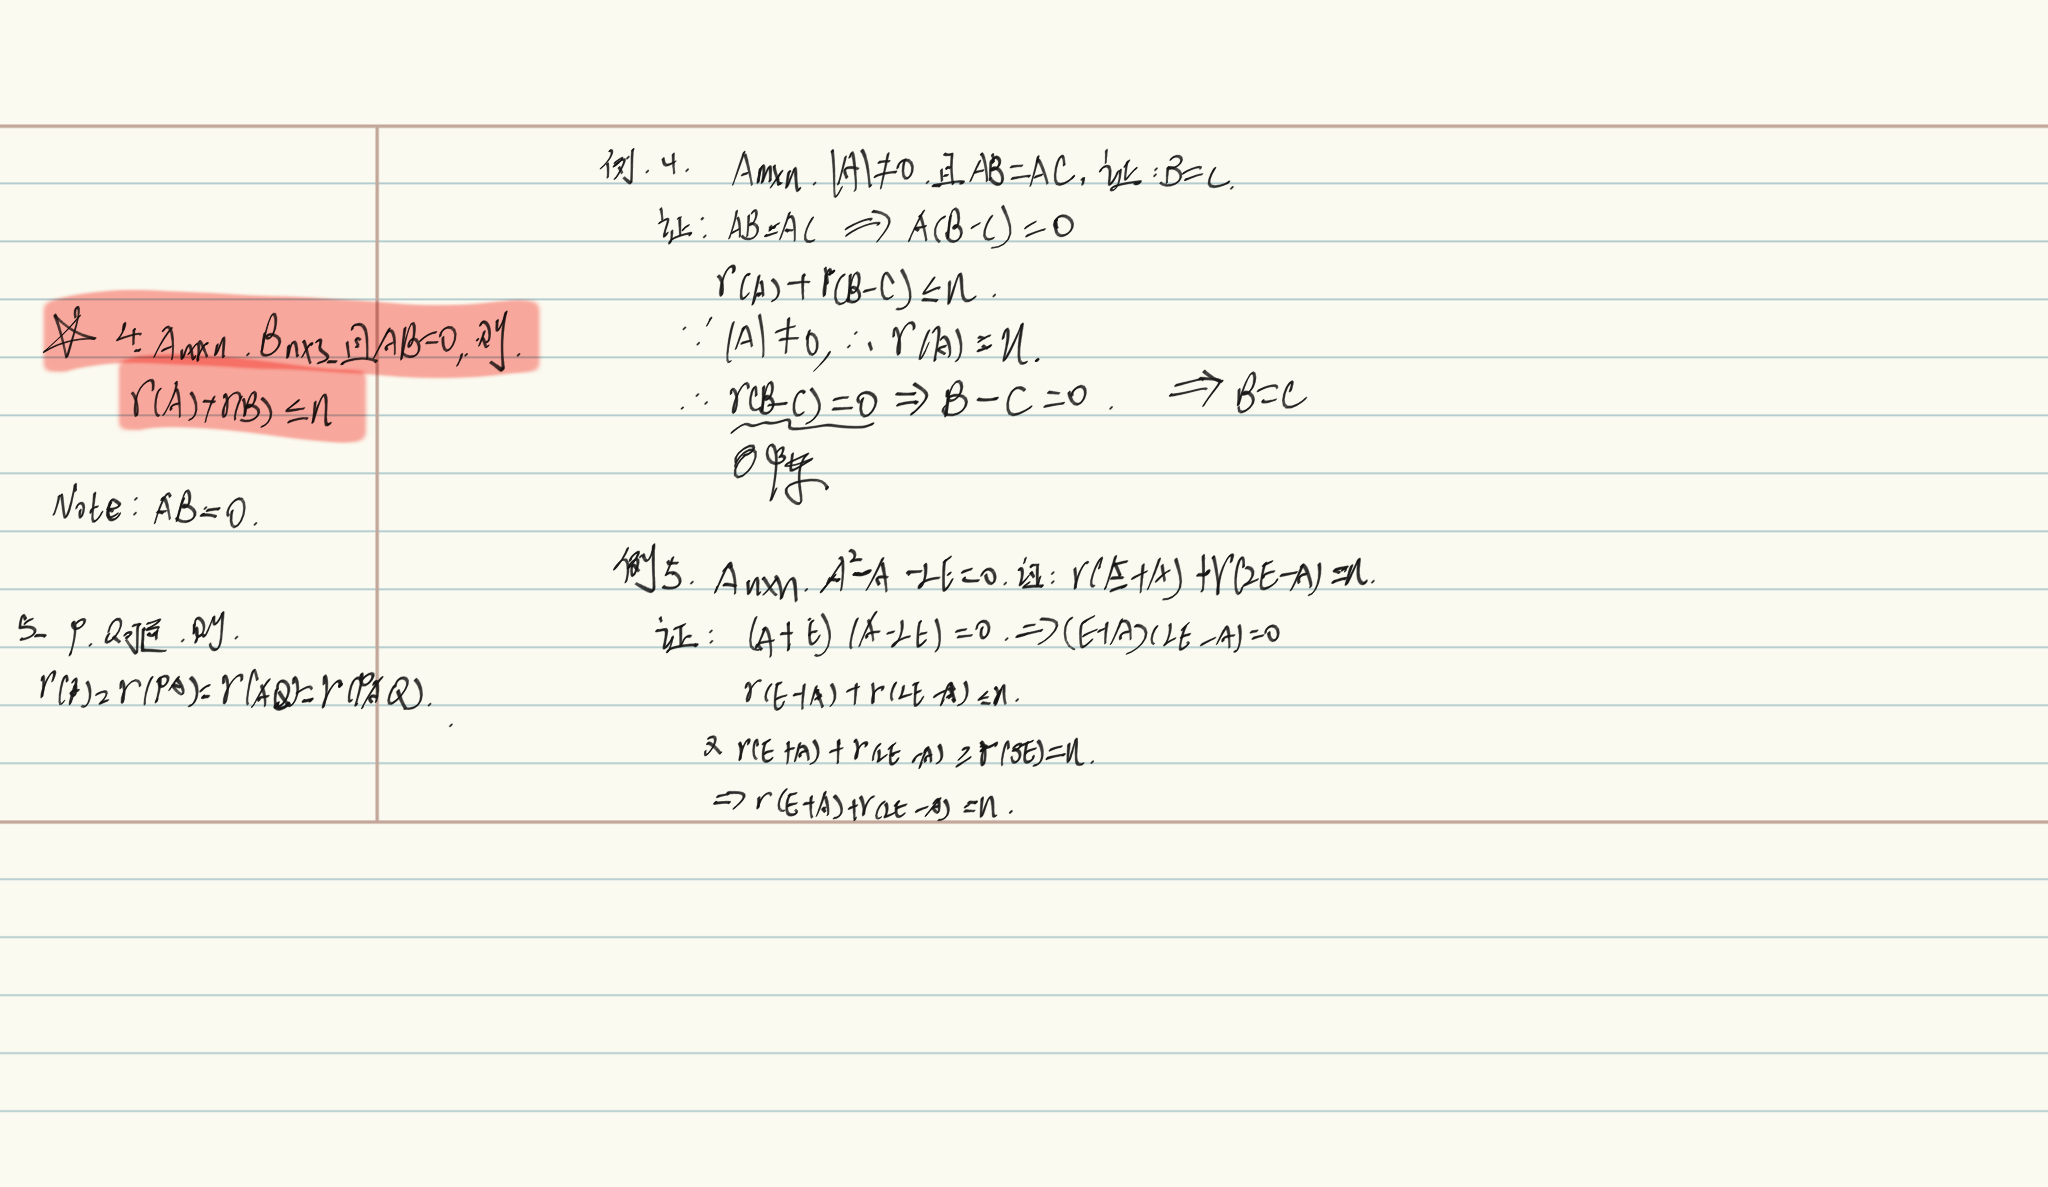 ☆ 4. Amxn. Bnxs 且AB=0, 则.
r(A)+r(B) ≤n
Note: AB=0.
5. P. Q可逆. 则.
r(A)=r(PA)=r(AQ)=r(PAQ).
例. 4. Amxn. |A|≠0. 且AB=AC, 证: B=C.
证: AB=AC ⇒ A(B-C)=0
r(A)+r(B-C)≤n.
∵ |A|≠0, ∴ r(A)=n.
∴ r(B-C)=0 ⇒ B-C=0. ⇒ B=C
0阵
例5. Anxn. A²-A-2E=0. 证: r(E+A)+r(2E-A)=n.
证: (A+E)(A-2E)=0. ⇒(E+A)(2E-A)=0
r(E+A)+r(2E-A)≤n.
又 r(E+A)+r(2E-A)≥r(3E)=n.
⇒ r(E+A)+r(2E-A)=n.